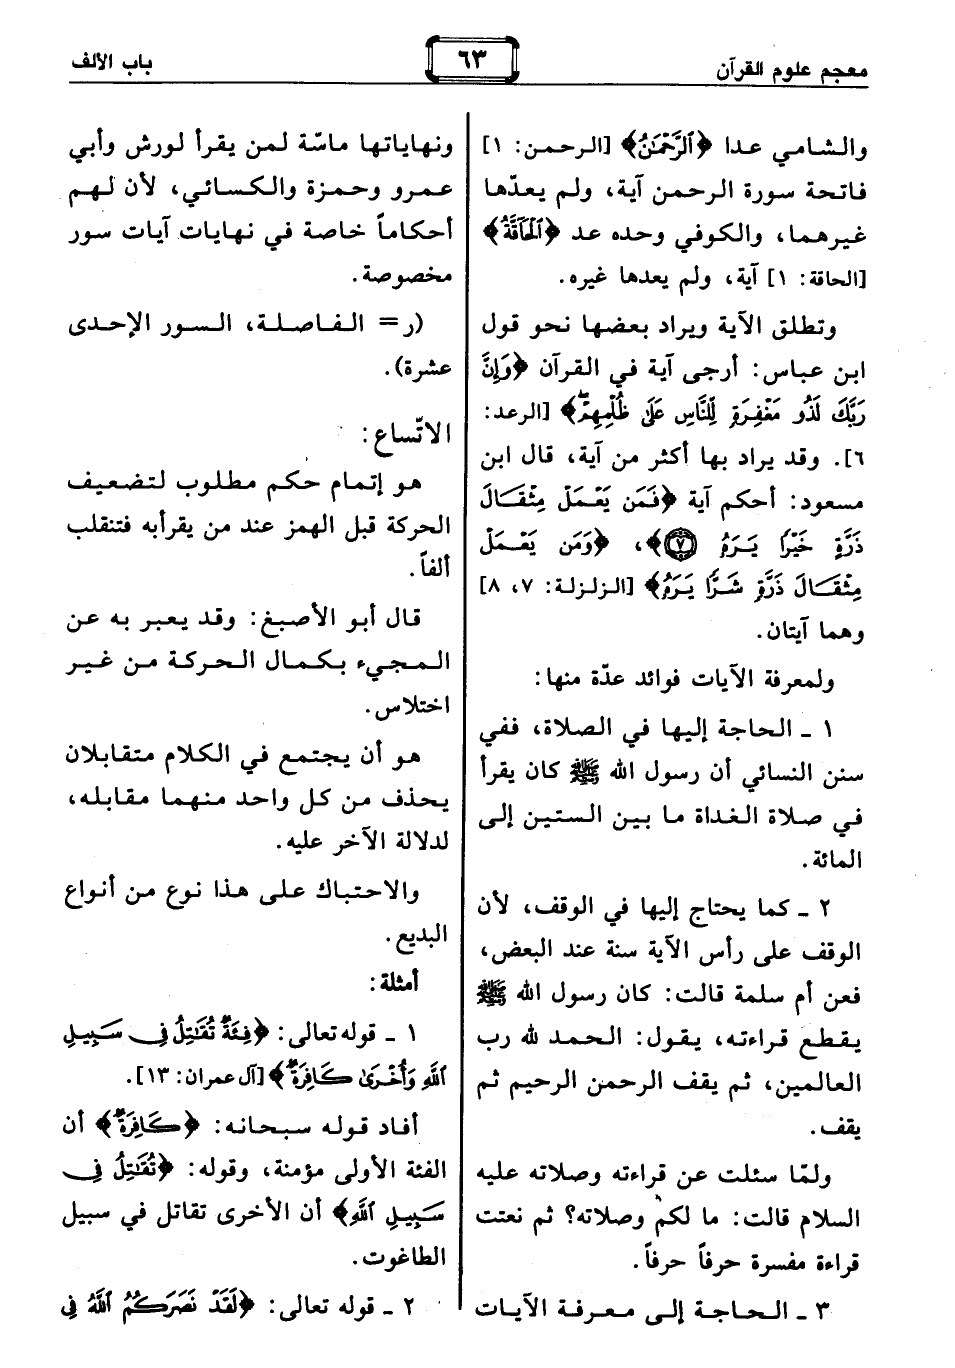 معجم علوم القرآن
٦٣
باب الألف
والشامي عدا ﴿ٱلرَّحْمَٰنُ﴾ [الرحمن: ١]
فاتحة سورة الرحمن آية، ولم يعدّها
غيرهما، والكوفي وحده عد ﴿ٱلْحَآقَّةُ﴾
[الحاقة: ١] آية، ولم يعدها غيره.
وتطلق الآية ويراد بعضها نحو قول
ابن عباس: أرجى آية في القرآن ﴿وَإِنَّ
رَبَّكَ لَذُو مَغْفِرَةٍ لِّلنَّاسِ عَلَىٰ ظُلْمِهِمْ﴾ [الرعد:
٦]. وقد يراد بها أكثر من آية، قال ابن
مسعود: أحكم آية ﴿فَمَن يَعْمَلْ مِثْقَالَ
ذَرَّةٍ خَيْرًا يَرَهُۥ ۝٧﴾، ﴿وَمَن يَعْمَلْ
مِثْقَالَ ذَرَّةٍ شَرًّا يَرَهُۥ﴾ [الزلزلة: ٧، ٨]
وهما آيتان.
ولمعرفة الآيات فوائد عدّة منها:
١ ـ الحاجة إليها في الصلاة، ففي
سنن النسائي أن رسول الله ﷺ كان يقرأ
في صلاة الغداة ما بين الستين إلى
المائة.
٢ ـ كما يحتاج إليها في الوقف، لأن
الوقف على رأس الآية سنة عند البعض،
فعن أم سلمة قالت: كان رسول الله ﷺ
يقطع قراءته، يقول: الحمد لله رب
العالمين، ثم يقف الرحمن الرحيم ثم
يقف.
ولمّا سئلت عن قراءته وصلاته عليه
السلام قالت: ما لكم وصلاته؟ ثم نعتت
قراءة مفسرة حرفاً حرفاً.
٣ ـ الحاجة إلى معرفة الآيات
ونهاياتها ماسّة لمن يقرأ لورش وأبي
عمرو وحمزة والكسائي، لأن لهم
أحكاماً خاصة في نهايات آيات سور
مخصوصة.
(ر= الفاصلة، السور الإحدى
عشرة).
الاتّساع:
هو إتمام حكم مطلوب لتضعيف
الحركة قبل الهمز عند من يقرأبه فتنقلب
ألفاً.
قال أبو الأصبغ: وقد يعبر به عن
المجيء بكمال الحركة من غير
اختلاس.
هو أن يجتمع في الكلام متقابلان
يحذف من كل واحد منهما مقابله،
لدلالة الآخر عليه.
والاحتباك على هذا نوع من أنواع
البديع.
أمثلة:
١ ـ قوله تعالى: ﴿فِئَةٌ تُقَٰتِلُ فِى سَبِيلِ
ٱللَّهِ وَأُخْرَىٰ كَافِرَةٌ﴾ [آل عمران: ١٣].
أفاد قوله سبحانه: ﴿كَافِرَةٌ﴾ أن
الفئة الأولى مؤمنة، وقوله: ﴿تُقَٰتِلُ فِى
سَبِيلِ ٱللَّهِ﴾ أن الأخرى تقاتل في سبيل
الطاغوت.
٢ ـ قوله تعالى: ﴿لَقَدْ نَصَرَكُمُ ٱللَّهُ فِى